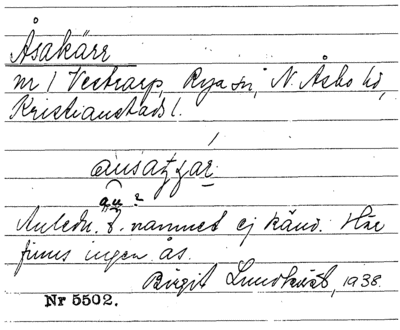 Åsakärr
nr 1 Vestrarp, Rya sn, N. Åsbo hd,
Kristianstads l.
au ?
Anledn. t. namnet ej känd. Här
finns ingen ås.
Birgit Lundkvist, 1938.
Nr 5502.